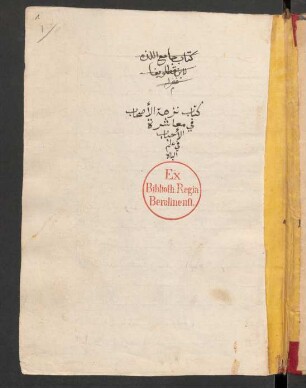 كتاب جامع اللذة
لابن
كتاب نزهة الأصحاب
في معاشرة
الأحباب
في علم
الباه
Ex
Biblioth. Regia
Berolinensi.